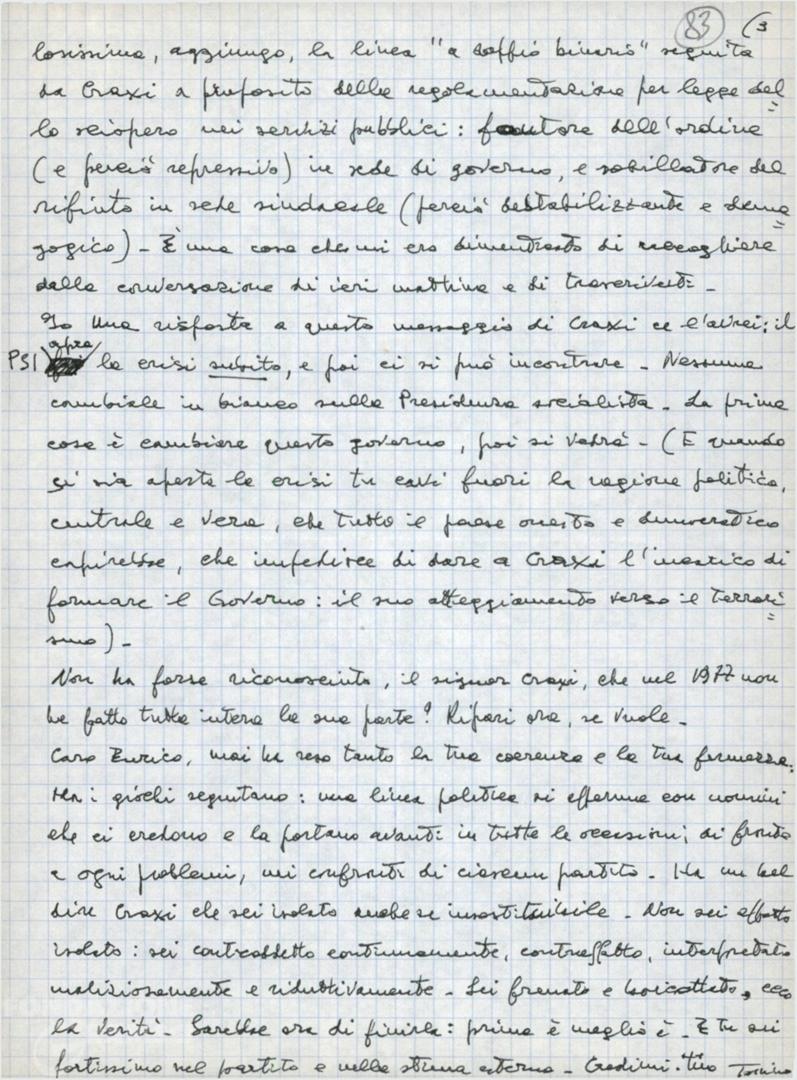 83 (3
losissima, aggiungo, la linea "a doppio binario" seguita
da Craxi a proposito della regolamentazione per legge del
lo sciopero nei servizi pubblici: fautore dell'ordine
(e perciò repressivo) in sede di governo, e sobillatore del
rifiuto in sede sindacale (perciò destabilizzante e dema
gogico) - È una cosa che mi ero dimenticato di raccogliere
dalla conversazione di ieri mattina e di trascriverti -
Io una risposta a questo messaggio di Craxi ce l'avrei; il
PSI apra la crisi subito, e poi ci si può incontrare - Nessuna
cambiale in bianco sulla Presidenza socialista - La prima
cosa è cambiare questo governo, poi si vedrà - (E quando
si sia aperta la crisi tu cavi fuori la ragione politica,
centrale e vera, che tutto il paese onesto e democratico
capirebbe, che impedisce di dare a Craxi l'incarico di
formare il Governo: il suo atteggiamento verso il terrori
smo) -
Non ha forse riconosciuto, il signor Craxi, che nel 1977 non
ha fatto tutta intera la sua parte? Ripari ora, se vuole -
Caro Enrico, mai ha reso tanto la tua coerenza e la tua fermezza.
Ma i giochi seguitano: una linea politica si afferma con uomini
che ci credono e la portano avanti in tutte le occasioni, di fronte
a ogni problemi, nei confronti di ciascun partito - Ha un bel
dire Craxi che sei isolato anche se insostituibile - Non sei affatto
isolato: sei contraddetto continuamente, contraffatto, interpretato
maliziosamente e riduttivamente - Sei frenato e boicottato, ecco
la verità - Sarebbe ora di finirla: prima è meglio è - E tu sei
fortissimo nel partito e nella stima esterna - Credimi. tuo Tonino